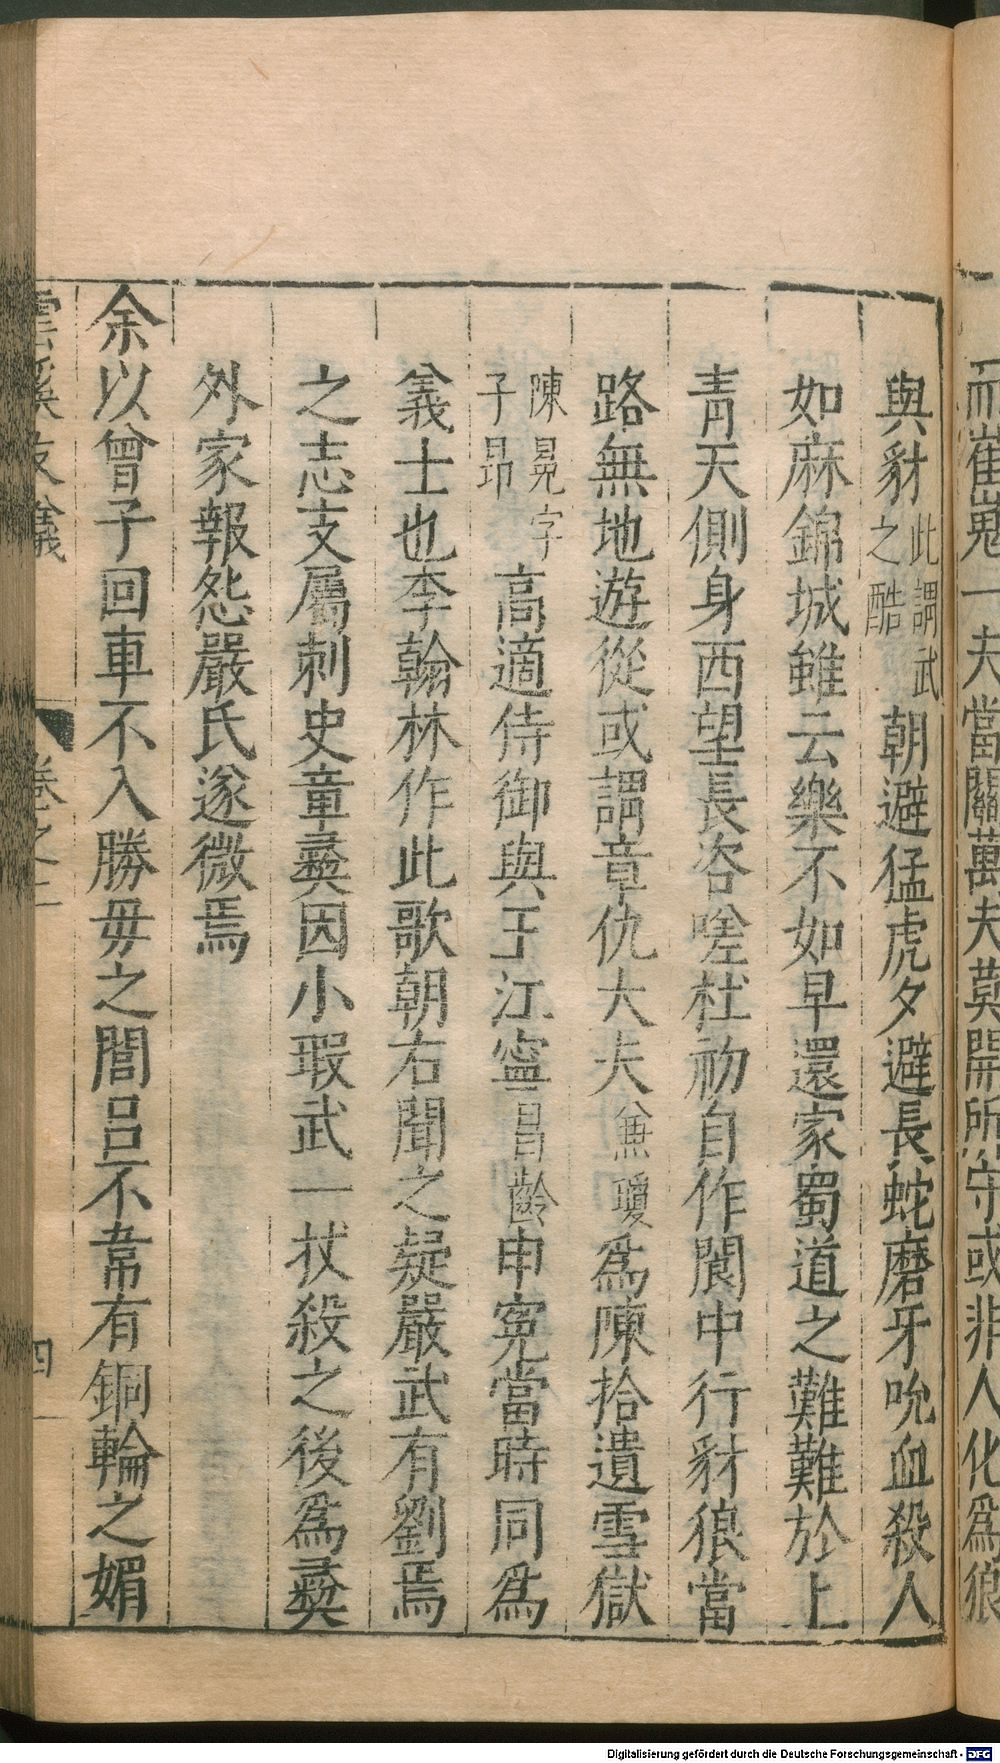 而崔嵬一夫當關萬夫莫開所守或非人化爲狼
與豺此謂武之酷朝避猛虎夕避長蛇磨牙吮血殺人
如麻錦城雖云樂不如早還家蜀道之難難於上
青天側身西望長咨嗟杜初自作閬中行豺狼當
路無地遊從或謂章仇大夫兼瓊爲陳拾遺雪獄
陳晃字子昂高適侍御與王江寧昌齡申寃當時同爲
義士也李翰林作此歌朝右聞之疑嚴武有劉焉
之志支屬刺史章彝因小瑕武一杖殺之後爲彝
外家報怨嚴氏遂微焉
余以曾子回車不入勝毋之閭呂不韋有銅輪之媚
雲溪友議 卷之二 四
Digitalisierung gefördert durch die Deutsche Forschungsgemeinschaft - DFG